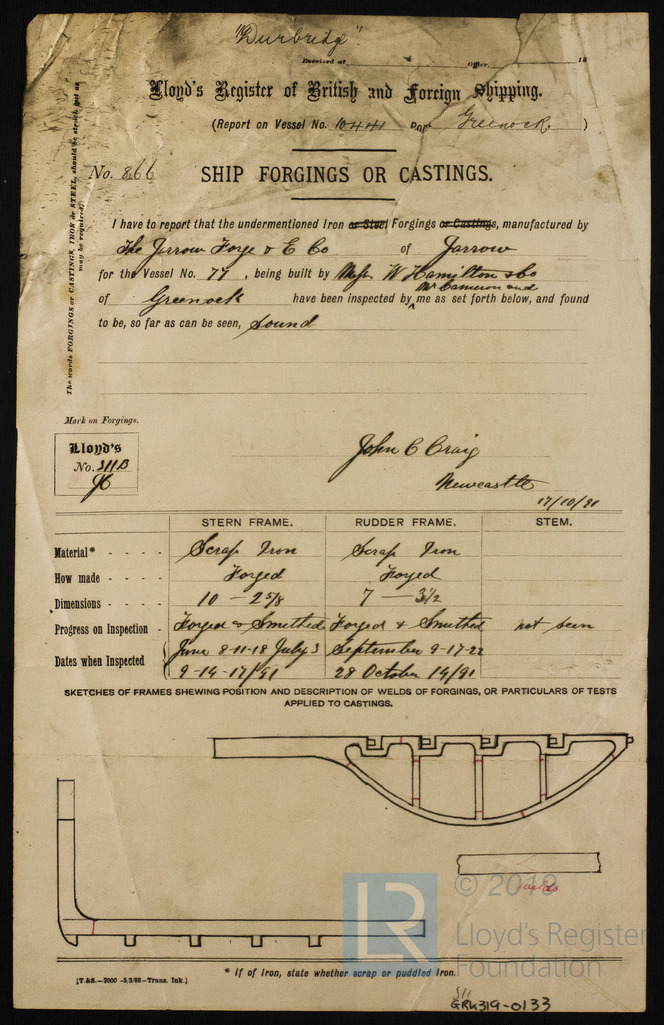 "Durbridge".
Received at Office 18
Lloyd's Register of British and Foreign Shipping.
(Report on Vessel No. 10441 Port Greenock. )
No. 866
SHIP FORGINGS OR CASTINGS.
The words FORGINGS or CASTINGS, IRON or STEEL, should be struck out as may be required.
I have to report that the undermentioned Iron or Steel Forgings or Castings, manufactured by
The Jarrow Forge & E Co of Jarrow
for the Vessel No. 77, being built by Messrs W Hamilton & Co
Mr Cameron and
of Greenock have been inspected by me as set forth below, and found
to be, so far as can be seen, sound
Mark on Forgings.
Lloyd's
No. 311B
John C Craig
Newcastle
17/10/91
STERN FRAME. RUDDER FRAME. STEM.
Material* - - - - Scrap Iron Scrap Iron
How made - - - - Forged Forged
Dimensions - - - - 10 — 2 5/8 7 — 3 1/2
Progress on Inspection - Forged & Smithed Forged & Smithed not seen
Dates when Inspected June 8-11-18 July 3 September 9-17-22
9-14-17/91 28 October 14/91
SKETCHES OF FRAMES SHEWING POSITION AND DESCRIPTION OF WELDS OF FORGINGS, OR PARTICULARS OF TESTS
APPLIED TO CASTINGS.
welds
© 2019
LR
Lloyd's Register
Foundation
* If of Iron, state whether scrap or puddled Iron.
[T.&S.—2000 -5/3/88-Trans. Ink.]
GRK319-0133